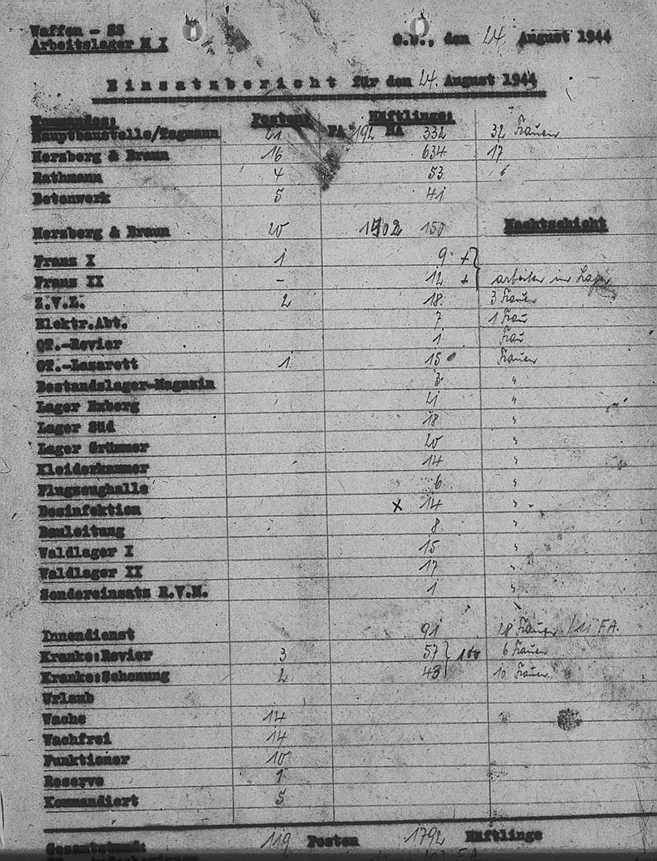 Waffen - SS
Arbeitslager M I
O.U., den 24. August 1944
Einsatzbericht für den 24. August 1944
Kommandos: Posten: Häftlinge:
Hauptbaustelle/Zugmann 21 FA 192 HA 332 32 Frauen
Herzberg & Braun 16 634 17 "
Rathmann 4 53 "
Betonwerk 5 41
Herzberg & Braun 20 150 Nachtschicht
Franz I 1 9 +
Franz II - 12 + arbeiten im Lager
Z.V.L. 2 18 3 Frauen
Elektr.Abt. 7 1 Frau
OT.-Revier 1 Frau
OT.-Lazarett 1 15 Frauen
Bestandslager-Magazin 3 "
Lager Exberg 21 "
Lager Süd 18 "
Lager Grümmer 20 "
Kleiderkammer 14 "
Flugzeughalle 6 "
Desinfektion x 14 "
Bauleitung 8 "
Waldlager I 15 "
Waldlager XX 17 "
Sondereinsatz R.V.M. 1 "
Innendienst 91 18 Frauen / 11 FA.
Kranke:Revier 3 57 } 100 6 Frauen
Kranke:Schonung 2 43 10 Frauen
Urlaub
Wache 14
Wachfrei 14
Funktioner 10
Reserve 1
Kommandiert 5
Gesamtstärke 119 Posten 1792 Häftlinge